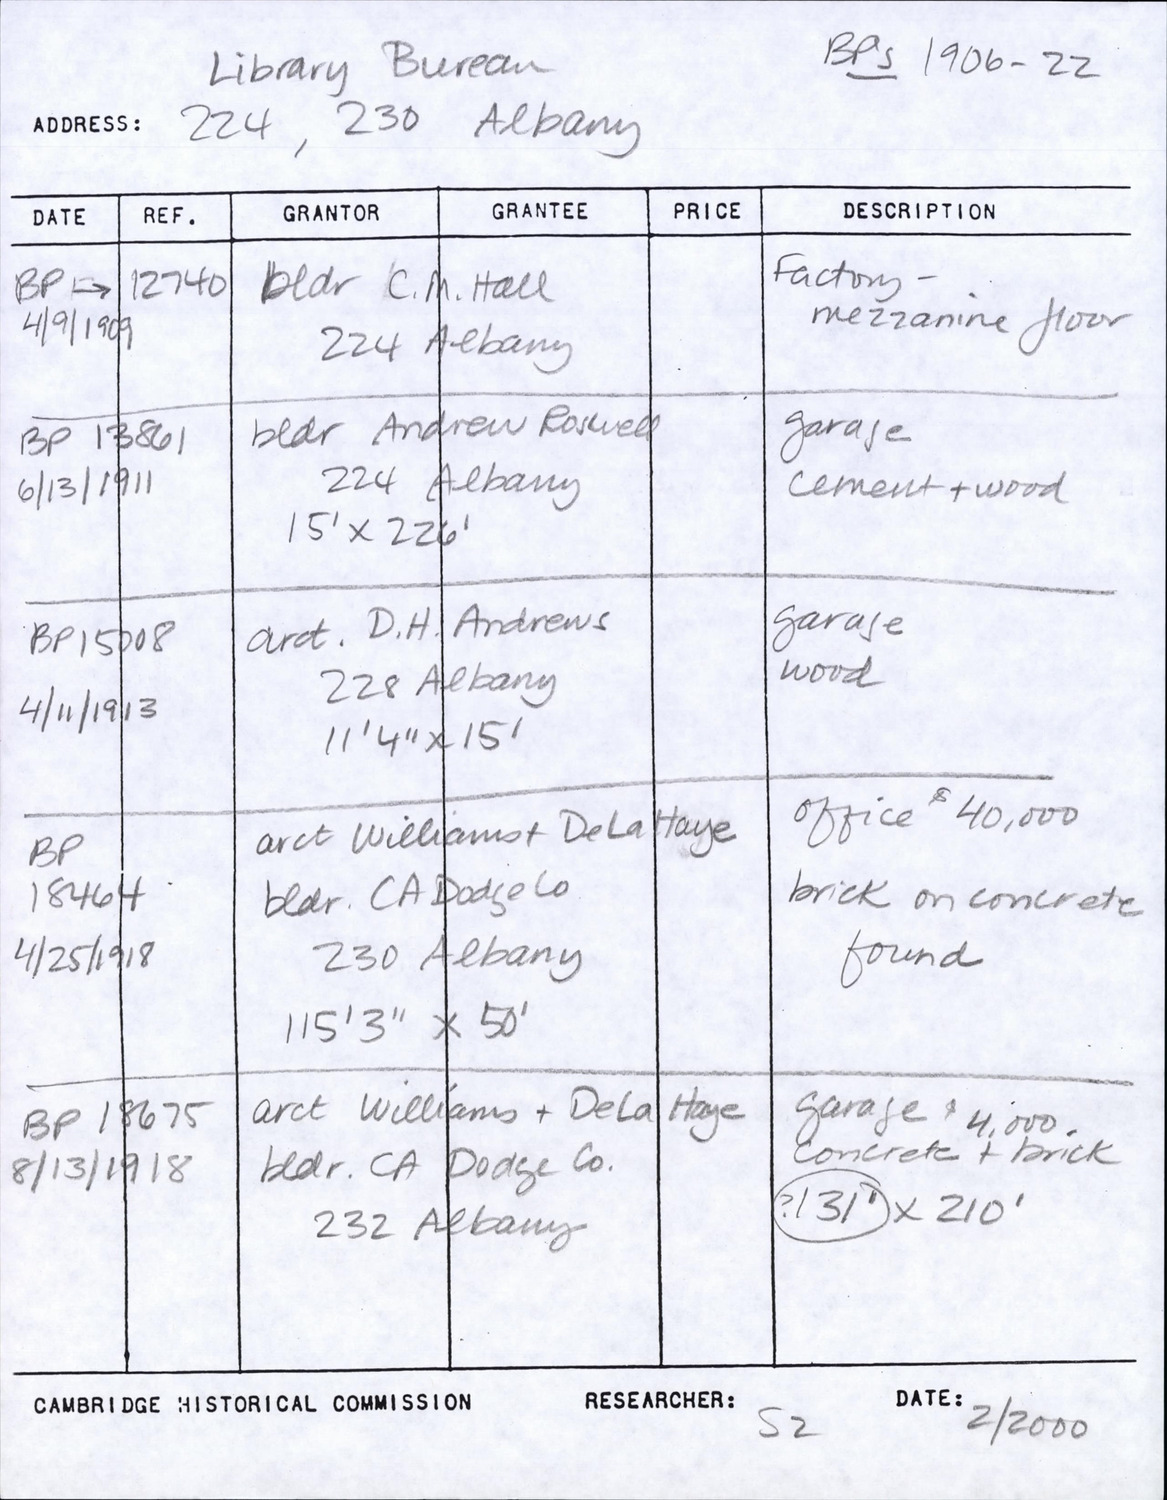 Library Bureau
BPs 1906-22
ADDRESS: 224, 230 Albany
DATE REF. GRANTOR GRANTEE PRICE DESCRIPTION
BP → 12740 bldr C.M. Hall Factory -
4/9/1909 224 Albany mezzanine floor
BP 13861 bldr Andrew Roswell garage
6/13/1911 224 Albany cement + wood
15' x 226'
BP 15008 arct. D.H. Andrews garage
228 Albany wood
4/11/1913 11'4" x 15'
BP arct Williams + DeLaHaye office $40,000
18464 bldr. CA Dodge Co brick on concrete
4/25/1918 230 Albany found
115'3" x 50'
BP 18675 arct Williams + DeLaHaye garage $4,000.
8/13/1918 bldr. CA Dodge Co. concrete + brick
232 Albany ?131' x 210'
CAMBRIDGE HISTORICAL COMMISSION RESEARCHER: SZ DATE: 2/2000